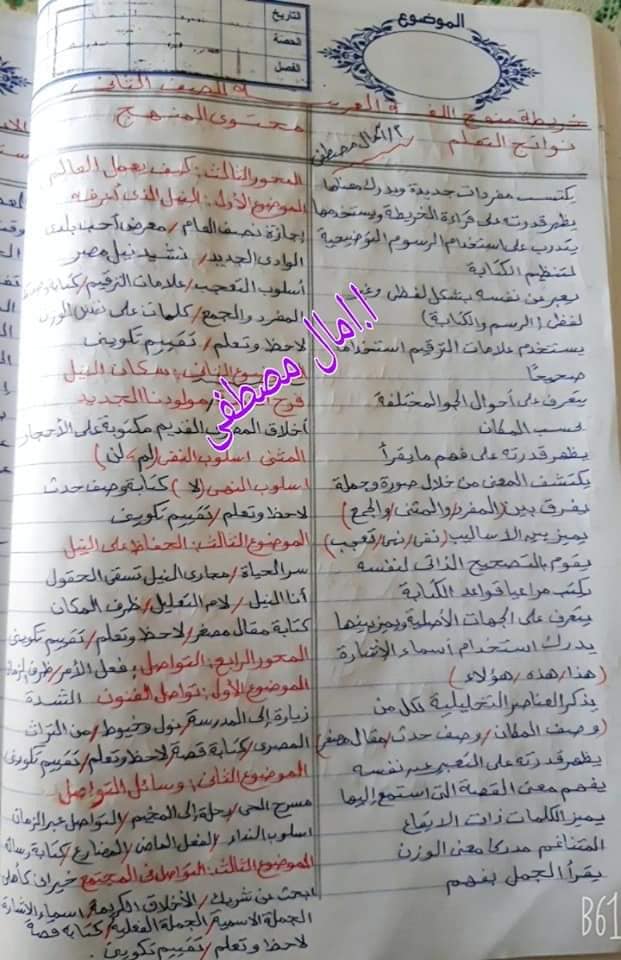 الموضوع
التاريخ
الحصة
الفصل
خريطة منهج اللغة العربية للصف الثانى
نواتج التعلم
محتوى المنهج
ا/ امال مصطفى
يكتسب مفردات جديدة ويدرك معناها
يظهر قدرته على قراءة الخريطة ويستخدمها
يتدرب على استخدام الرسوم التوضيحية
لتنظيم الكتابة
يعبر عن نفسه بشكل لفظى وغير
لفظى (الرسم والكتابة)
يستخدم علامات الترقيم استخدامًا
صحيحًا
يتعرف على أحوال الجو المختلفة
بحسب المكان
يظهر قدرته على فهم ما يقرأ
يكتشف المعنى من خلال صورة وجملة
يفرق بين (المفرد/ والمثنى/ والجمع)
يميز بين الأساليب (نفى/ نهى/ تعجب)
يقوم بالتصحيح الذاتى لنفسه
يكتب مراعيا قواعد الكتابة
يتعرف على الجهات الأصلية ويميز بينها
يدرك استخدام أسماء الإشارة
(هذا/ هذه/ هؤلاء)
يذكر العناصر التحليلية لكل من
(وصف المكان/ وصف حدث/ مقال مصغر)
يظهر قدرته على التعبير عن نفسه
يفهم معنى القصة التى استمع إليها
يميز الكلمات ذات الايقاع
المتناغم مدركا معنى الوزن
يقرأ الجمل بفهم
المحور الثالث: كيف يعمل العالم
الموضوع الأول: النيل الذى أعرفه
إجازة نصف العام/ معرض أحب بلدى
الوادى الجديد/ نشيد نيل مصر
أسلوب التعجب/ علامات الترقيم/ كتابة
المفرد والجمع/ كلمات على نفس الوزن
لاحظ وتعلم/ تقييم تكوينى
الموضوع الثانى: سكان النيل
فرح / مولودنا الجديد
أخلاق المصرى القديم مكتوبة على الأحجار
المثنى/ اسلوب النفى (لم/ لن)
اسلوب النهى (لا) كتابة وصف حدث
لاحظ وتعلم/ تقييم تكوينى
الموضوع الثالث: الحفاظ على النيل
سر الحياة/ مجارى النيل تسقى الحقول
أنا النيل/ لام التعليل/ ظرف المكان
كتابة مقال مصغر/ لاحظ وتعلم/ تقييم تكوينى
المحور الرابع: التواصل/ فعل الأمر/ ظرف الزمان
الموضوع الأول: تواصل الفنون
زيارة إلى المدرسة/ نول وخيوط/ من التراث
المصرى/ كتابة قصة/ لاحظ وتعلم/ تقييم تكوينى
الموضوع الثانى: وسائل التواصل
مسرح الحى/ رحلة إلى المخيم/ التواصل عبر الزمان
اسلوب النداء/ الفعل الماضى/ المضارع/ كتابة رسالة
الموضوع الثالث: التواصل فى المجتمع
ابحث عن شريك/ الأخلاق الكريمة/ اسماء الإشارة
الجملة الاسمية/ الجملة الفعلية/ كتابة قصة
لاحظ وتعلم/ تقييم تكوينى.
ا.امال مصطفى
B61